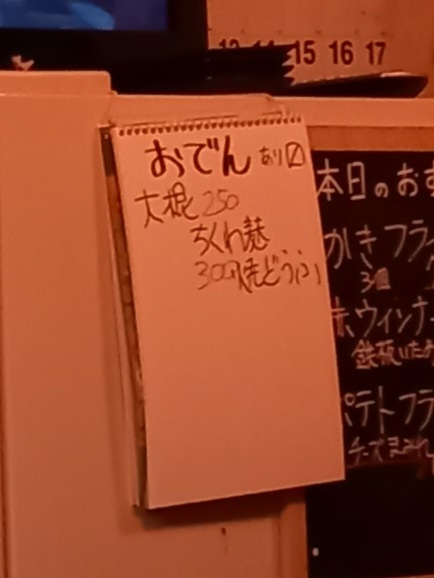 13 14 15 16 17
おでん あり☑
大根 250
ちくわ麩
300 焼どうふ
本日のおす
かきフラ
3個
赤ウィンナー
鉄板いため
ポテトフラ
チーズ